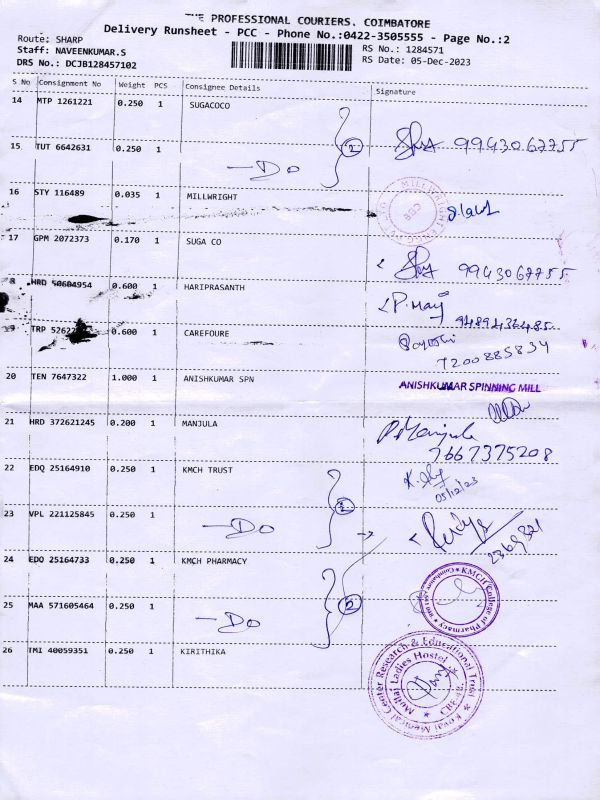 THE PROFESSIONAL COURIERS, COIMBATORE
Delivery Runsheet - PCC - Phone No.:0422-3505555 - Page No.:2
Route: SHARP
RS No.: 1284571
Staff: NAVEENKUMAR.S
RS Date: 05-Dec-2023
DRS No.: DCJB128457102
S No Consignment No Weight PCS Consignee Details Signature
14 MTP 1261221 0.250 1 SUGACOCO
15 TUT 6642631 0.250 1 9943067755
—Do
16 STY 116489 0.035 1 MILLWRIGHT
17 GPM 2072373 0.170 1 SUGA CO
9943067755
HRD 50604954 0.600 1 HARIPRASANTH
P. May
TRP 0.600 1 CAREFOURE
7200885834
20 TEN 7647322 1.000 1 ANISHKUMAR SPN ANISHKUMAR SPINNING MILL
21 HRD 372621245 0.200 1 MANJULA P. Manjula
7667375208
22 EDQ 25164910 0.250 1 KMCH TRUST
05/12/23
23 VPL 221125845 0.250 1
—Do
24 EDQ 25164733 0.250 1 KMCH PHARMACY
KMCH College of Pharmacy
25 MAA 571605464 0.250 1
—Do
26 TMI 40059351 0.250 1 KIRITHIKA
Kovai Medical Center Research & Educational Trust
Mullai Ladies Hostel